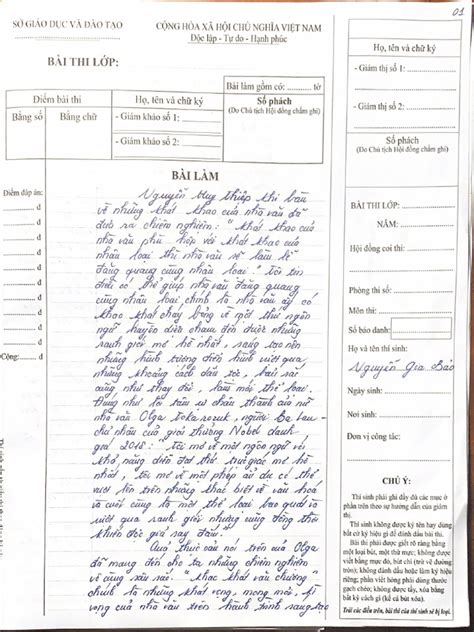 01
SỞ GIÁO DỤC VÀ ĐÀO TẠO
CỘNG HÒA XÃ HỘI CHỦ NGHĨA VIỆT NAM
Độc lập - Tự do - Hạnh phúc
BÀI THI LỚP:
Bài làm gồm có: tờ
Điểm bài thi
Họ, tên và chữ ký
Số phách
(Do Chủ tịch Hội đồng chấm ghi)
Bằng số
Bằng chữ
- Giám khảo số 1:
- Giám khảo số 2:
BÀI LÀM
Điểm đáp án:
đ
đ
đ
đ
đ
đ
đ
đ
đ
Cộng: đ
Nguyễn Huy Thiệp khi bàn
về những khát khao của nhà văn đã
đưa ra chiêm nghiệm: "khát khao của
nhà văn phù hợp với khát khao của
nhân loại thì nhà văn sẽ làm lễ
đăng quang cùng nhân loại". Tôi tin
để có thể giúp nhà văn đăng quang
cùng nhân loại chính là nhà văn ấy có
khao khát cháy bỏng về một thứ ngôn
ngữ huyền diệu chạm đến được những
ranh giới mơ hồ nhất, sáng tạo nên
những hình tượng điển hình vượt qua
những khoảng cách dân tộc, bản sắc
cũng như thay đổi, làm mới thể loại.
Đúng như lời tâm sự chân thành của nữ
nhà văn Olga Tokarczuk, người Ba Lan -
chủ nhân của giải thưởng Nobel danh
giá 2018: "Tôi mơ về một ngôn ngữ với
khả năng diễn đạt thứ trực giác mơ hồ
nhất, tôi mơ về một phép ẩn dụ có thể
vượt lên trên những khác biệt về văn hóa
và cuối cùng là một thể loại bao quát và
vượt qua ranh giới nhưng cũng đồng thời
khiến độc giả say đắm".
Quả thực câu nói trên của Olga
đã mang đến cho ta những chiêm nghiệm
vô cùng sâu sắc. "Khao khát văn chương"
chính là những khát vọng, mong mỏi, kì
vọng của nhà văn trên hành trình sáng tạo
Họ, tên và chữ ký
- Giám thị số 1:
- Giám thị số 2:
Số phách
(Do Chủ tịch Hội đồng chấm ghi)
BÀI THI LỚP:
NĂM:
Hội đồng coi thi:
Phòng thi số:
Môn thi:
Số báo danh:
Họ và tên thí sinh:
Nguyễn Gia Bảo
Ngày sinh:
Nơi sinh:
Đơn vị công tác:
CHÚ Ý:
Thí sinh phải ghi đầy đủ các mục ở
phần trên theo sự hướng dẫn của giám
thị.
Thí sinh không được ký tên hay dùng
bất cứ ký hiệu gì để đánh dấu bài thi.
Bài thi phải được viết rõ ràng bằng
một loại bút, một thứ mực; không được
viết bằng mực đỏ, bút chì (trừ vẽ đường
tròn); không đánh dấu hoặc làm ký hiệu
riêng; phần viết hỏng phải dùng thước
gạch chéo; không được tẩy, xóa bằng
bất kỳ cách gì (kể cả bút xóa).
Trái các điều trên, bài thi của thí sinh sẽ bị loại.